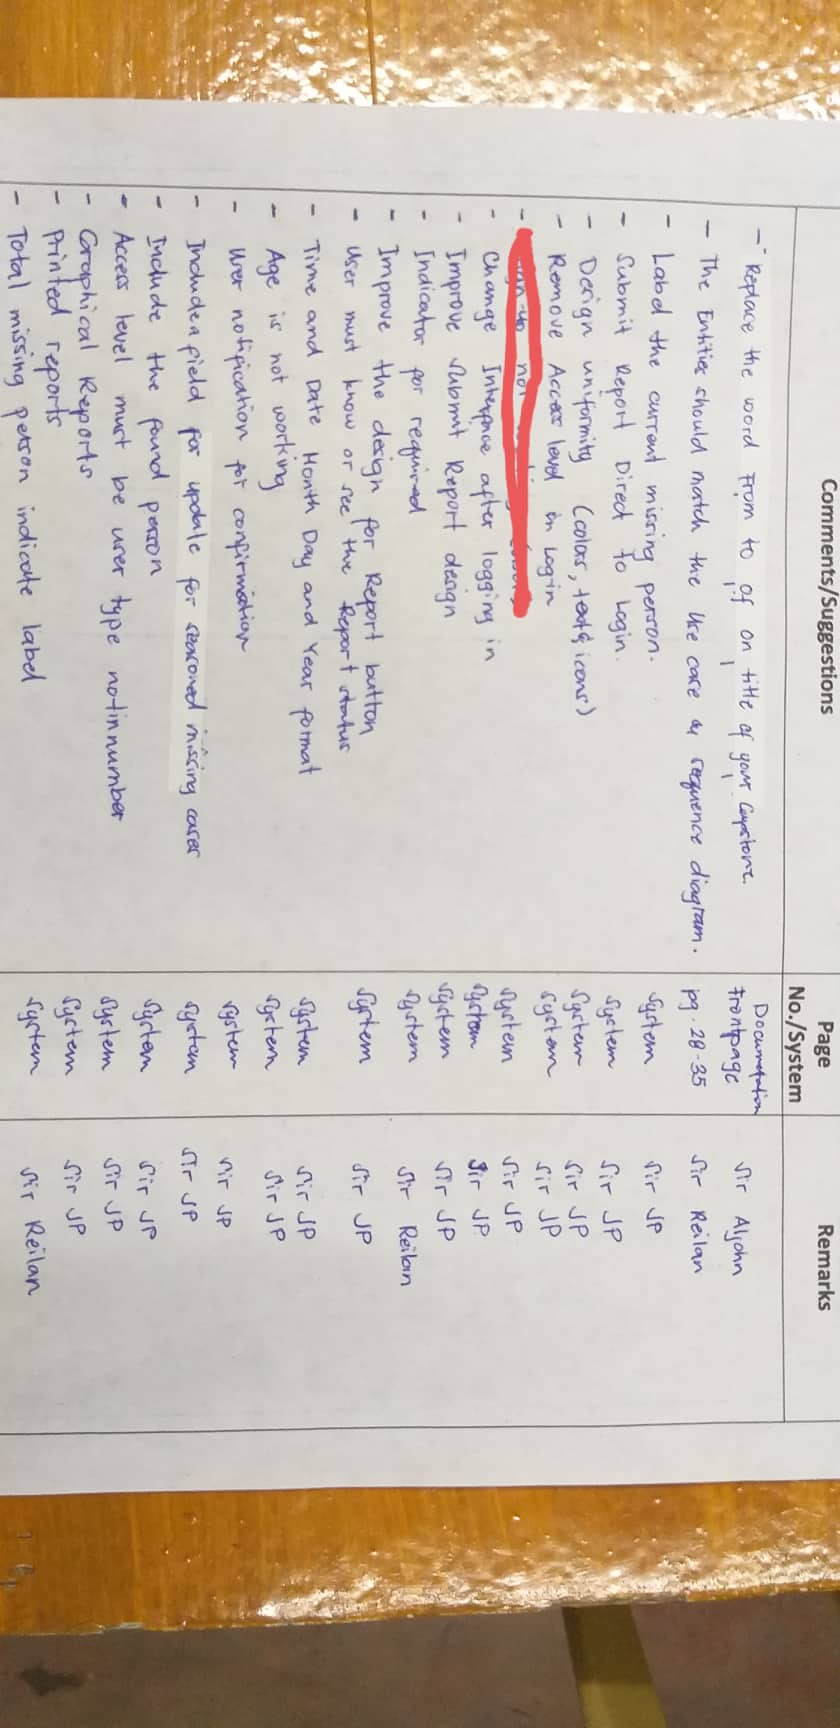 Comments/Suggestions Page No./System Remarks
- Replace the word From to of on title of your Capstone. Documentation frontpage Sir Aljohn
- The Entities should match the Use case & sequence diagram. pg. 28-35 Sir Reilan
- Label the current missing person. System Sir JP
- Submit Report Direct to Login. System Sir JP
- Design uniformity (colors, text & icons) System Sir JP
- Remove Access level in Login System Sir JP
- not System Sir JP
- Change Interface after logging in System Sir JP
- Improve Submit Report design System Sir JP
- Indicator for required System Sir Reilan
- Improve the design for Report button
- User must know or see the Report status System Sir JP
- Time and Date Month Day and Year format System Sir JP
- Age is not working System Sir JP
- User notification for confirmation System Sir JP
- Include a field for update for missing cases System Sir JP
- Include the found person System Sir JP
- Access level must be user type not in number System Sir JP
- Graphical Reports System Sir JP
- Printed reports
- Total missing person indicate label System Sir Reilan